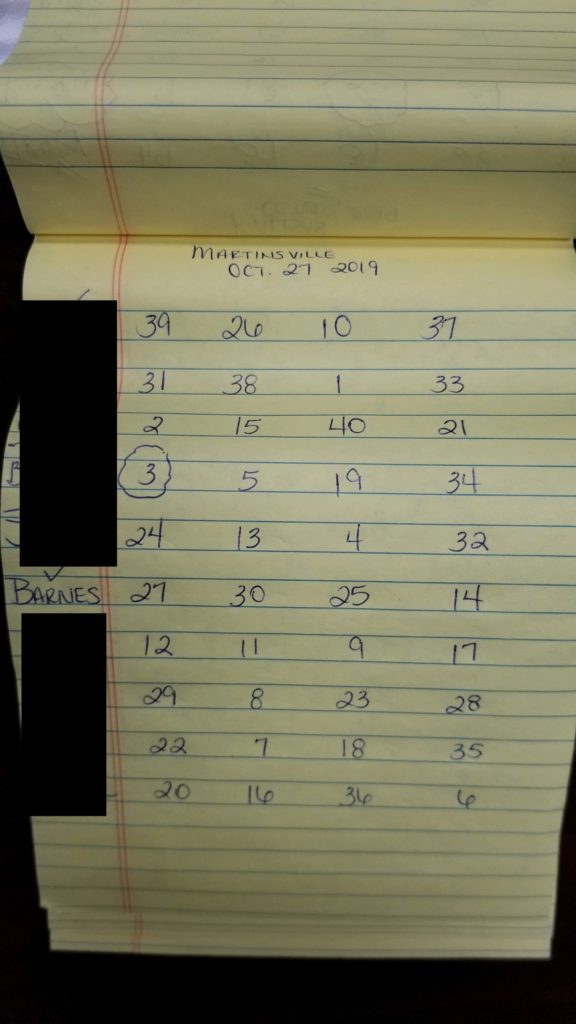 MARTINSVILLE
OCT. 27 2019
39 26 10 37
31 38 1 33
2 15 40 21
3 5 19 34
24 13 4 32
BARNES 27 30 25 14
12 11 9 17
29 8 23 28
22 7 18 35
20 16 36 6